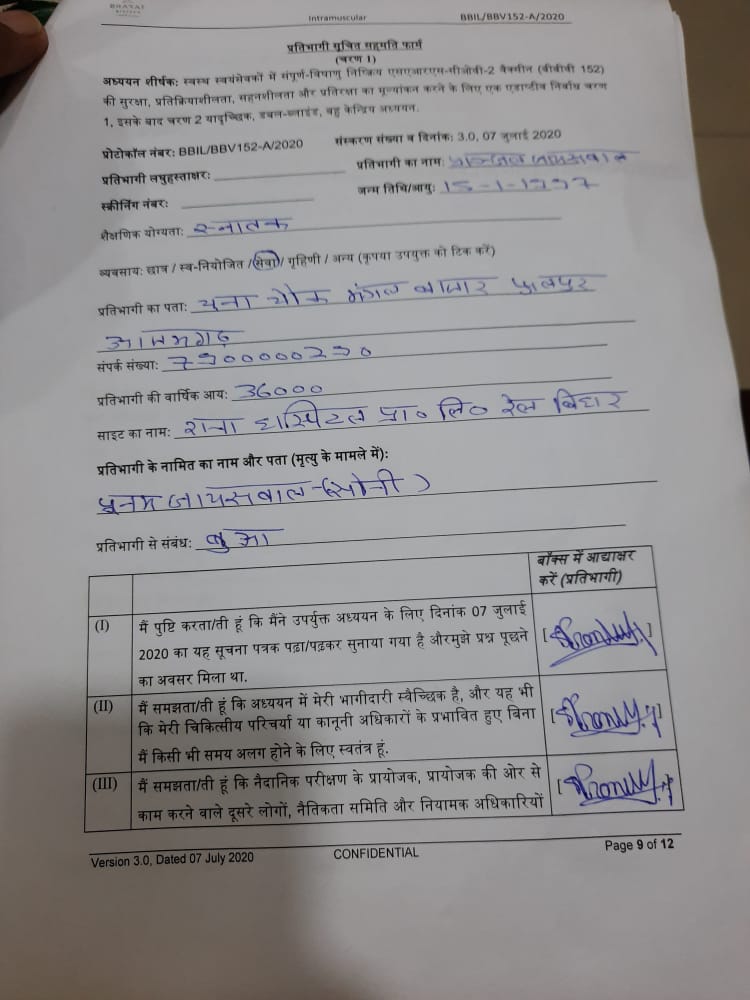 BHARAT
BIOTECH
Intramuscular BBIL/BBV152-A/2020
प्रतिभागी सूचित सहमति फार्म
(चरण 1)
अध्ययन शीर्षक: स्वस्थ स्वयंसेवकों में संपूर्ण-विषाणु निष्क्रिय एसएआरएस-सीओवी-2 वैक्सीन (बीबीवी 152)
की सुरक्षा, प्रतिक्रियाशीलता, सहनशीलता और प्रतिरक्षा का मूल्यांकन करने के लिए एक एडाप्टीव निर्बाध चरण
1, इसके बाद चरण 2 यादृच्छिक, डबल-ब्लाइंड, बहु केन्द्रिय अध्ययन.
प्रोटोकॉल नंबर: BBIL/BBV152-A/2020 संस्करण संख्या व दिनांक: 3.0, 07 जुलाई 2020
प्रतिभागी लघुहस्ताक्षर: प्रतिभागी का नाम: जायसवाल
स्क्रीनिंग नंबर: जन्म तिथि/आयु: 15-1-1997
शैक्षणिक योग्यता: स्नातक
व्यवसाय: छात्र / स्व-नियोजित / सेवा / गृहिणी / अन्य (कृपया उपयुक्त को टिक करें)
प्रतिभागी का पता: चौक मंगल बाजार फूलपुर
आजमगढ़
संपर्क संख्या:
प्रतिभागी की वार्षिक आय: 36000
साइट का नाम: राना हास्पिटल प्रा० लि० रेल बिहार
प्रतिभागी के नामित का नाम और पता (मृत्यु के मामले में):
पूनम जायसवाल-(सोनी)
प्रतिभागी से संबंध: बुआ
बॉक्स में आद्याक्षर
करें (प्रतिभागी)
(I) मैं पुष्टि करता/ती हूं कि मैंने उपर्युक्त अध्ययन के लिए दिनांक 07 जुलाई
2020 का यह सूचना पत्रक पढ़ा/पढ़कर सुनाया गया है औरमुझे प्रश्न पूछने
का अवसर मिला था.
(II) मैं समझता/ती हूं कि अध्ययन में मेरी भागीदारी स्वैच्छिक है, और यह भी
कि मेरी चिकित्सीय परिचर्या या कानूनी अधिकारों के प्रभावित हुए बिना
मैं किसी भी समय अलग होने के लिए स्वतंत्र हूं.
(III) मैं समझता/ती हूं कि नैदानिक परीक्षण के प्रायोजक, प्रायोजक की ओर से
काम करने वाले दूसरे लोगों, नैतिकता समिति और नियामक अधिकारियों
Version 3.0, Dated 07 July 2020 CONFIDENTIAL Page 9 of 12